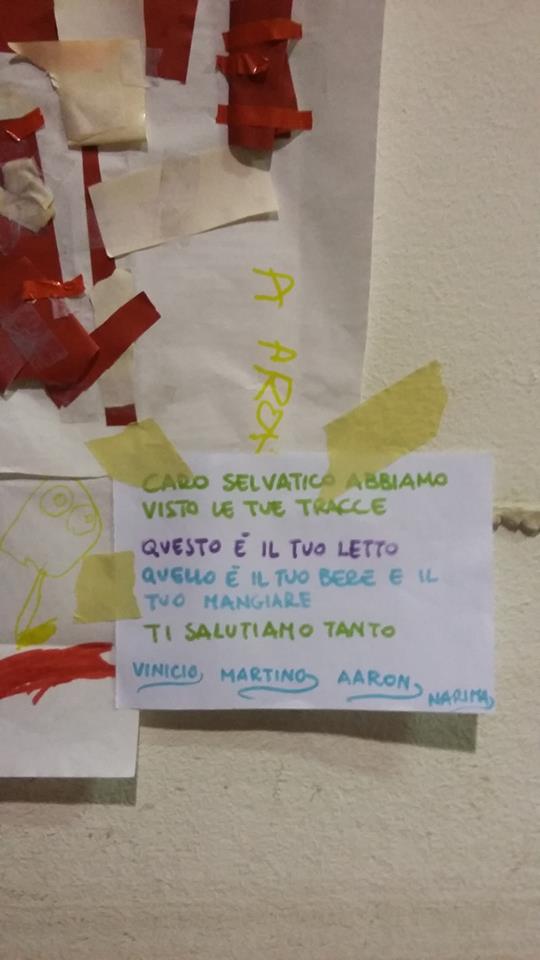 CARO SELVATICO ABBIAMO
VISTO LE TUE TRACCE
QUESTO È IL TUO LETTO
QUELLO È IL TUO BERE E IL
TUO MANGIARE
TI SALUTIAMO TANTO
VINICIO MARTINO AARON
NARIMA